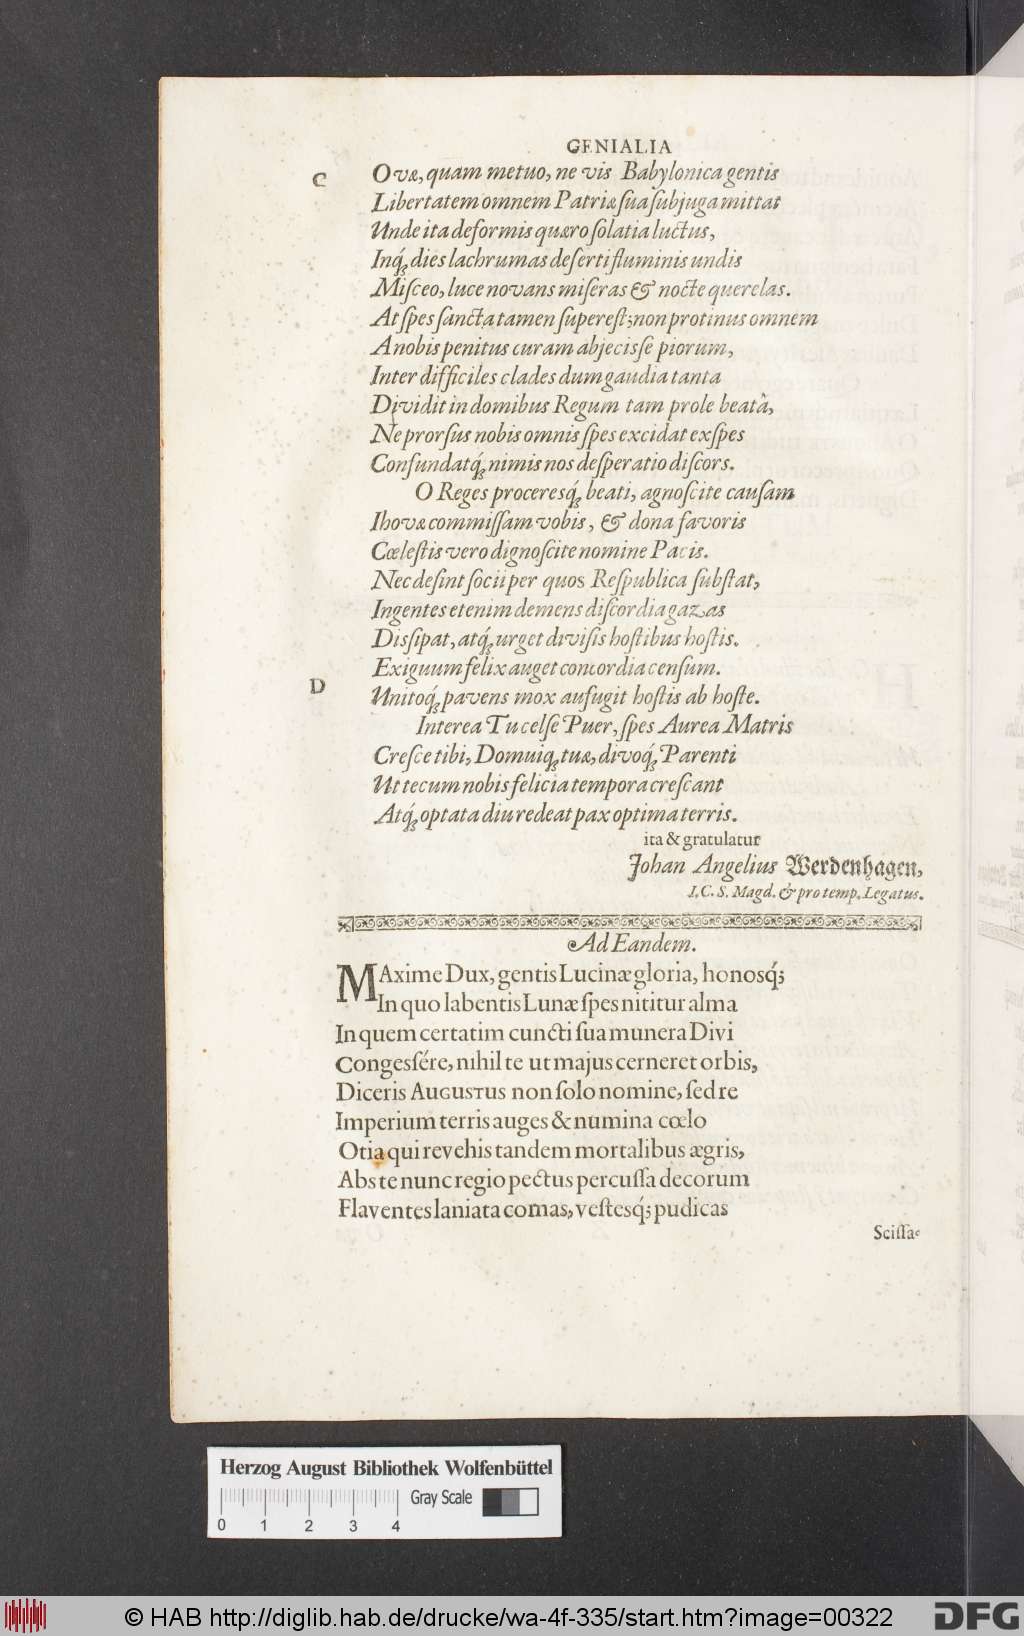 GENIALIA
C
O væ, quam metuo, ne vis Babylonica gentis
Libertatem omnem Patriæ sua sub juga mittat
Unde ita deformis quæro solatia luctus,
Inq́; dies lachrumas deserti fluminis undis
Misceo, luce novans miseras & nocte querelas.
At spes sancta tamen superest; non protinus omnem
A nobis penitus curam abjecisse piorum,
Inter difficiles clades dum gaudia tanta
Dividit in domibus Regum tam prole beatâ,
Ne prorsus nobis omnis spes excidat exspes
Confundatq́; nimis nos desperatio discors.
O Reges proceresq́; beati, agnoscite causam
Ihovæ commissam vobis, & dona favoris
Cœlestis vero dignoscite nomine Pacis.
Nec desint socii per quos Respublica substat,
Ingentes etenim demens discordia gazas
Dissipat, atq́; urget divisis hostibus hostis.
Exiguum felix auget concordia censum.
D
Unitoq́; pavens mox aufugit hostis ab hoste.
Interea Tu celse Puer, spes Aurea Matris
Cresce tibi, Domuiq; tuæ, divoq́; Parenti
Ut tecum nobis felicia tempora crescant
Atq́; optata diu redeat pax optima terris.
ita & gratulatur
Johan Angelius Werdenhagen,
I. C. S. Magd. & pro temp. Legatus.
Ad Eandem.
MAxime Dux, gentis Lucinæ gloria, honosq́;
In quo labentis Lunæ spes nititur alma
In quem certatim cuncti sua munera Divi
Congessére, nihil te ut majus cerneret orbis,
Diceris AUGUSTUS non solo nomine, sed re
Imperium terris auges & numina cœlo
Otia qui revehis tandem mortalibus ægris,
Abs te nunc regio pectus percussa decorum
Flaventes laniata comas, vestesq́; pudicas
Scissa-
Herzog August Bibliothek Wolfenbüttel
Gray Scale
0 1 2 3 4
© HAB http://diglib.hab.de/drucke/wa-4f-335/start.htm?image=00322
DFG